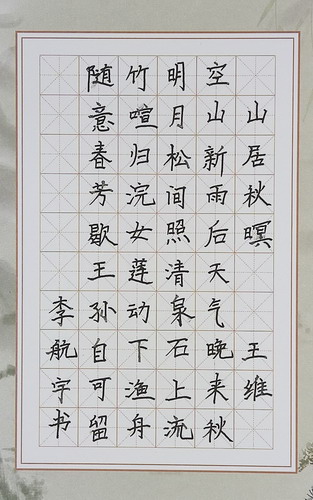 山居秋暝 王维
空山新雨后天气晚来秋
明月松间照清泉石上流
竹喧归浣女莲动下渔舟
随意春芳歇王孙自可留
李航宇书